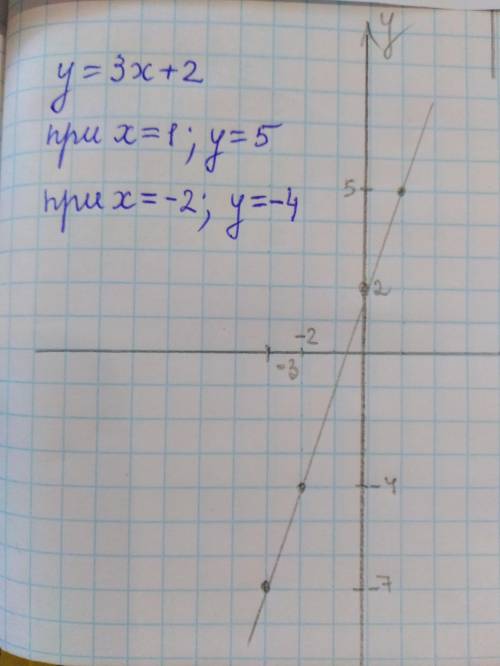 y = 3x + 2
при x = 1; y = 5
при x = -2; y = -4
y
5
2
-2
-3
-4
-7